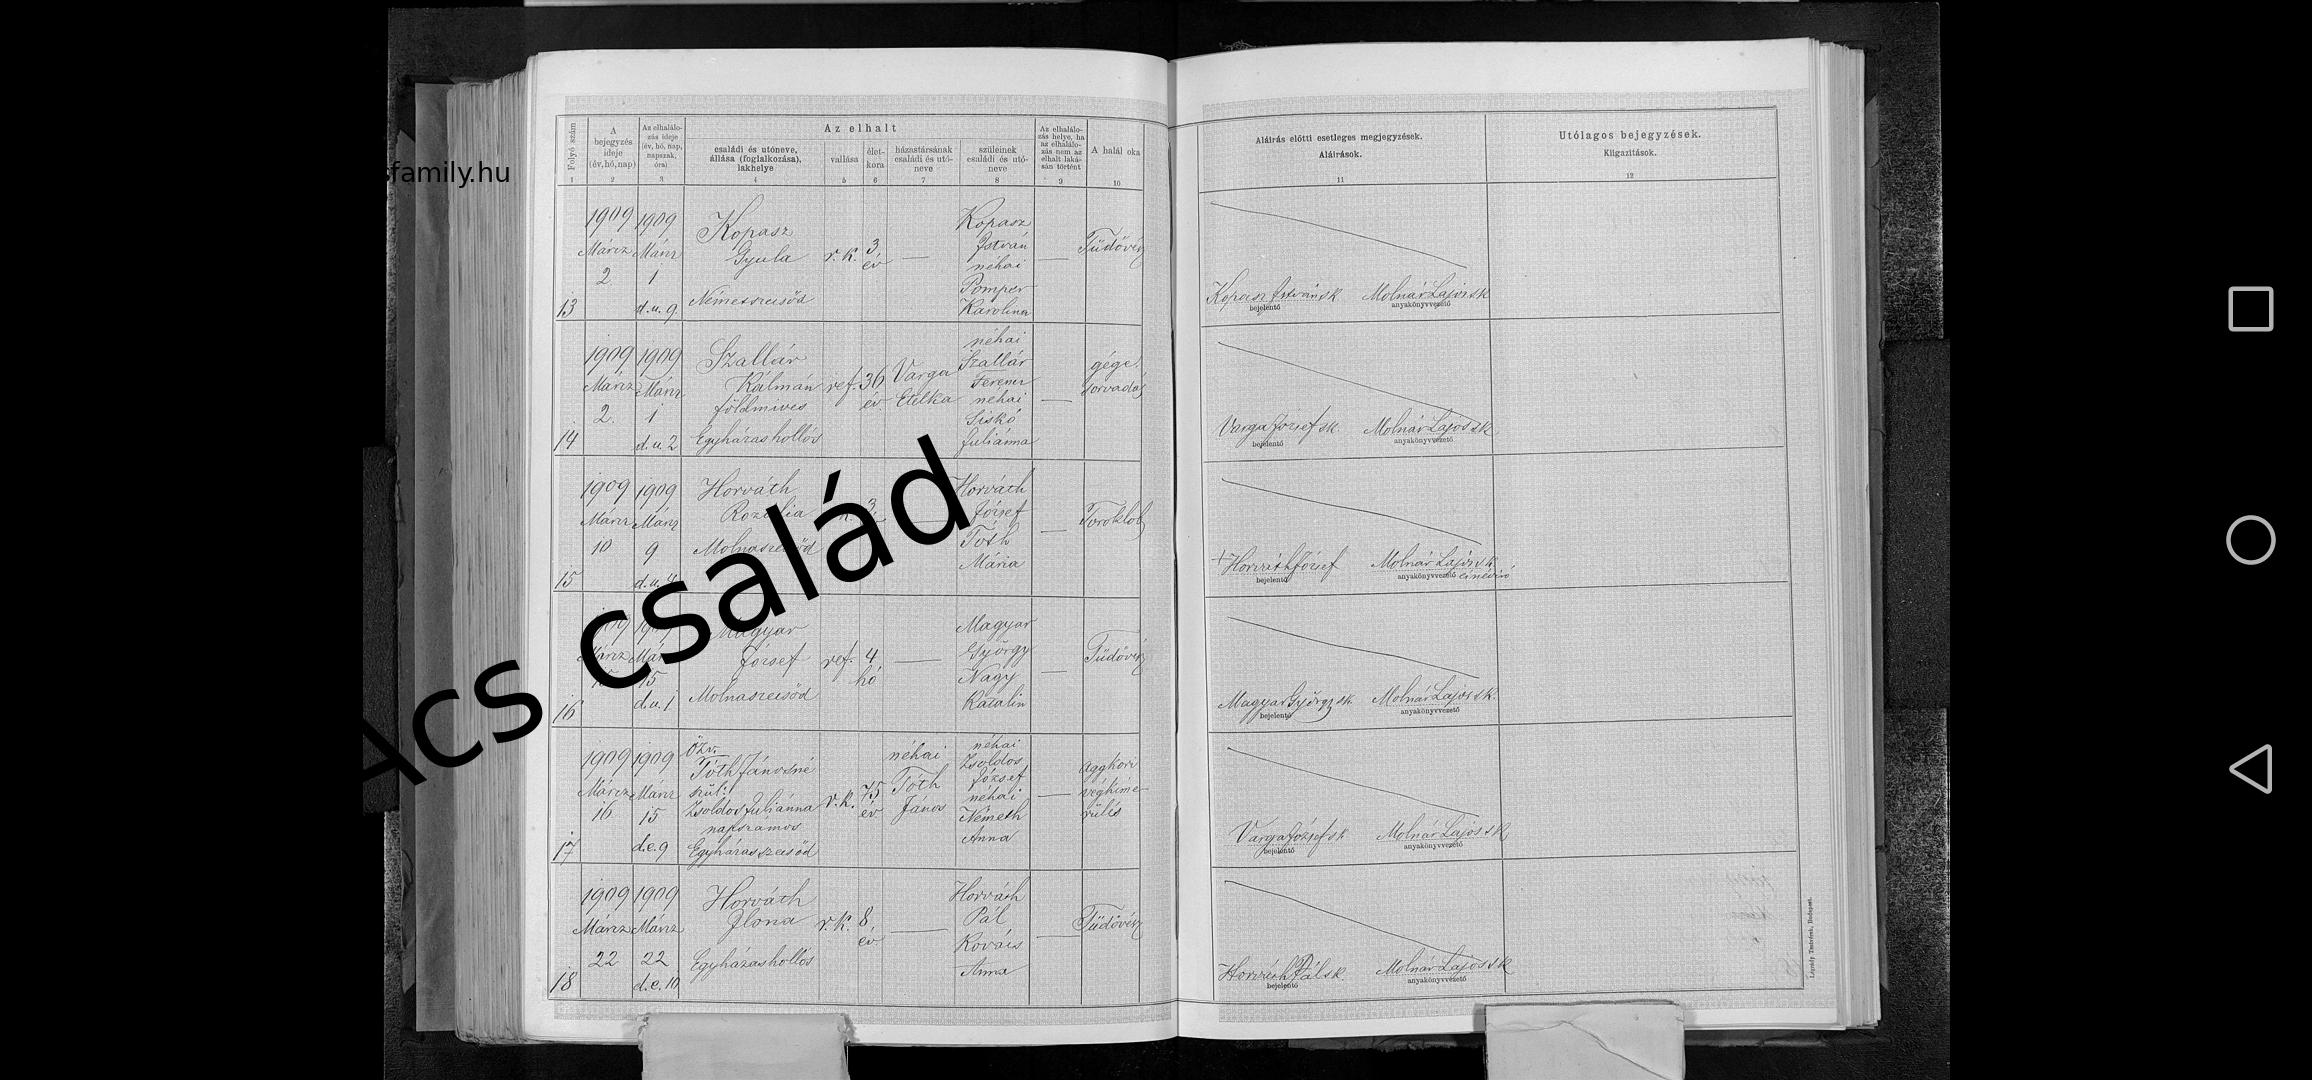 sfamily.hu
Ács család
Folyó szám
A bejegyzés ideje (év, hó, nap)
Az elhalálozás ideje (év, hó, nap, napszak, óra)
Az elhalt
családi és utóneve, állása (foglalkozása), lakhelye
vallása
életkora
házastársának családi és utóneve
szüleinek családi és utóneve
Az elhalálozás helye, ha az elhalálozás nem az elhalt lakásán történt
A halál oka
1 2 3 4 5 6 7 8 9 10
13
1909 Márcz 2
1909 Márcz 1 d.u. 9
Kopasz Gyula
Németszecsőd
r. k.
3 év
Kopasz István
néhai Pomper Karolina
Tüdővész
14
1909 Márcz 2
1909 Márcz 1 d.u. 2
Szallár Kálmán
földmives
Egyházashollós
ref.
36 év
Varga Etelka
néhai Szallár Ferencz
néhai Siskó Juliánna
gége sorvadás
15
1909 Márcz 10
1909 Márcz 9 d.u. 4
Horváth Rozália
Molnaszecsőd
3
Horváth József
Tóth Mária
Toroklob
16
Márcz
15 d.u. 1
Magyar József
Molnaszecsőd
ref.
4 hó
Magyar György
Nagy Katalin
Tüdővész
17
1909 Márcz 16
1909 Márcz 15 d.e. 9
Özv. Tóth Jánosné
szül: Zsoldos Juliánna
napszámos
Egyházasszecsőd
r. k.
75 év
néhai Tóth János
néhai Zsoldos József
néhai Németh Anna
aggkori végkimerülés
18
1909 Márcz 22
1909 Márcz 22 d.e. 10
Horváth Ilona
Egyházashollós
r. k.
8 év
Horváth Pál
Kovács Anna
Tüdővész
Aláirás előtti esetleges megjegyzések.
Aláirások.
11
Utólagos bejegyzések.
Kiigazitások.
12
Kopasz István sk. Molnár Lajos sk
bejelentő anyakönyvvezető
Varga József sk. Molnár Lajos sk
bejelentő anyakönyvvezető
+ Horváth József Molnár Lajos sk.
bejelentő anyakönyvvezető
Magyar György sk. Molnár Lajos sk.
bejelentő anyakönyvvezető
Varga József sk Molnár Lajos sk
bejelentő anyakönyvvezető
Horváth Pál sk Molnár Lajos sk
bejelentő anyakönyvvezető
Légrády Testvérek, Budapest.